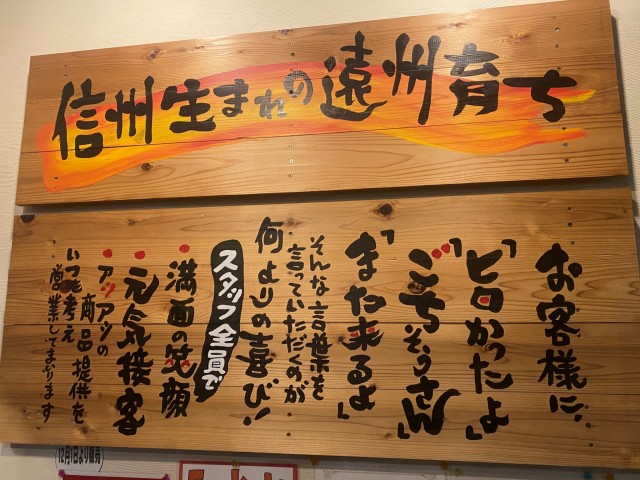 信州生まれの遠州育ち
お客様に、
「ヒロかったよ」
「ごちそうさん」
「また来るよ」
そんな言葉を
言っていただくのが
何よりの喜び!
スタッフ全員で
・満面の笑顔
・元気接客
・アツアツの
商品提供を
いつも考え
営業してまいります
12月1日より販売